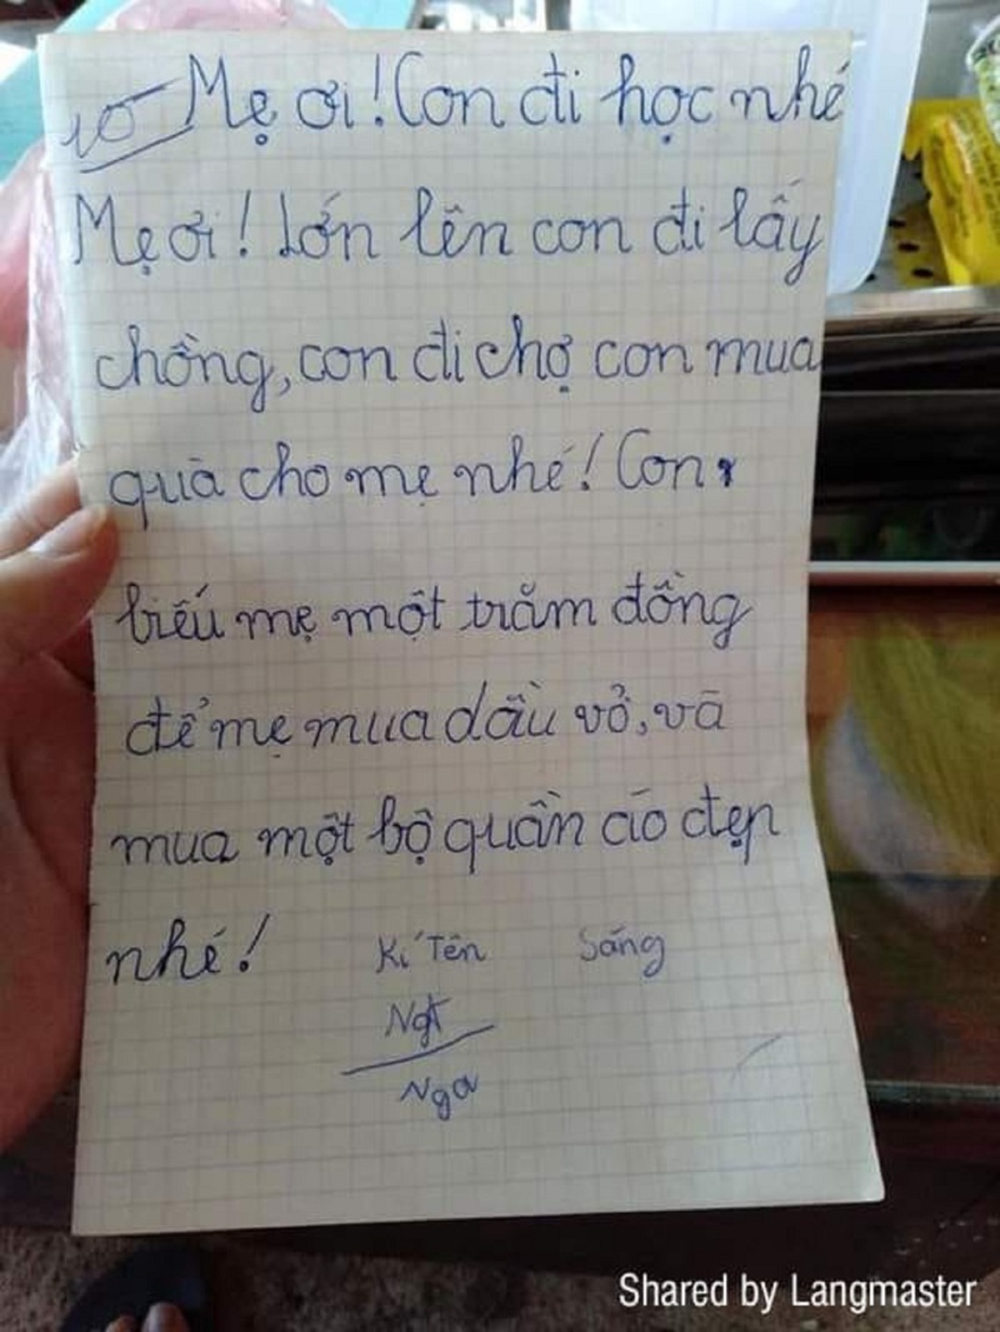 10 Mẹ ơi! Con đi học nhé
Mẹ ơi! Lớn lên con đi lấy
chồng, con đi chợ con mua
quà cho mẹ nhé! Con
biếu mẹ một trăm đồng
để mẹ mua dầu vỏ, và
mua một bộ quần áo đẹp
nhé! Kí Tên Sáng
Ngt
Nga
Shared by Langmaster